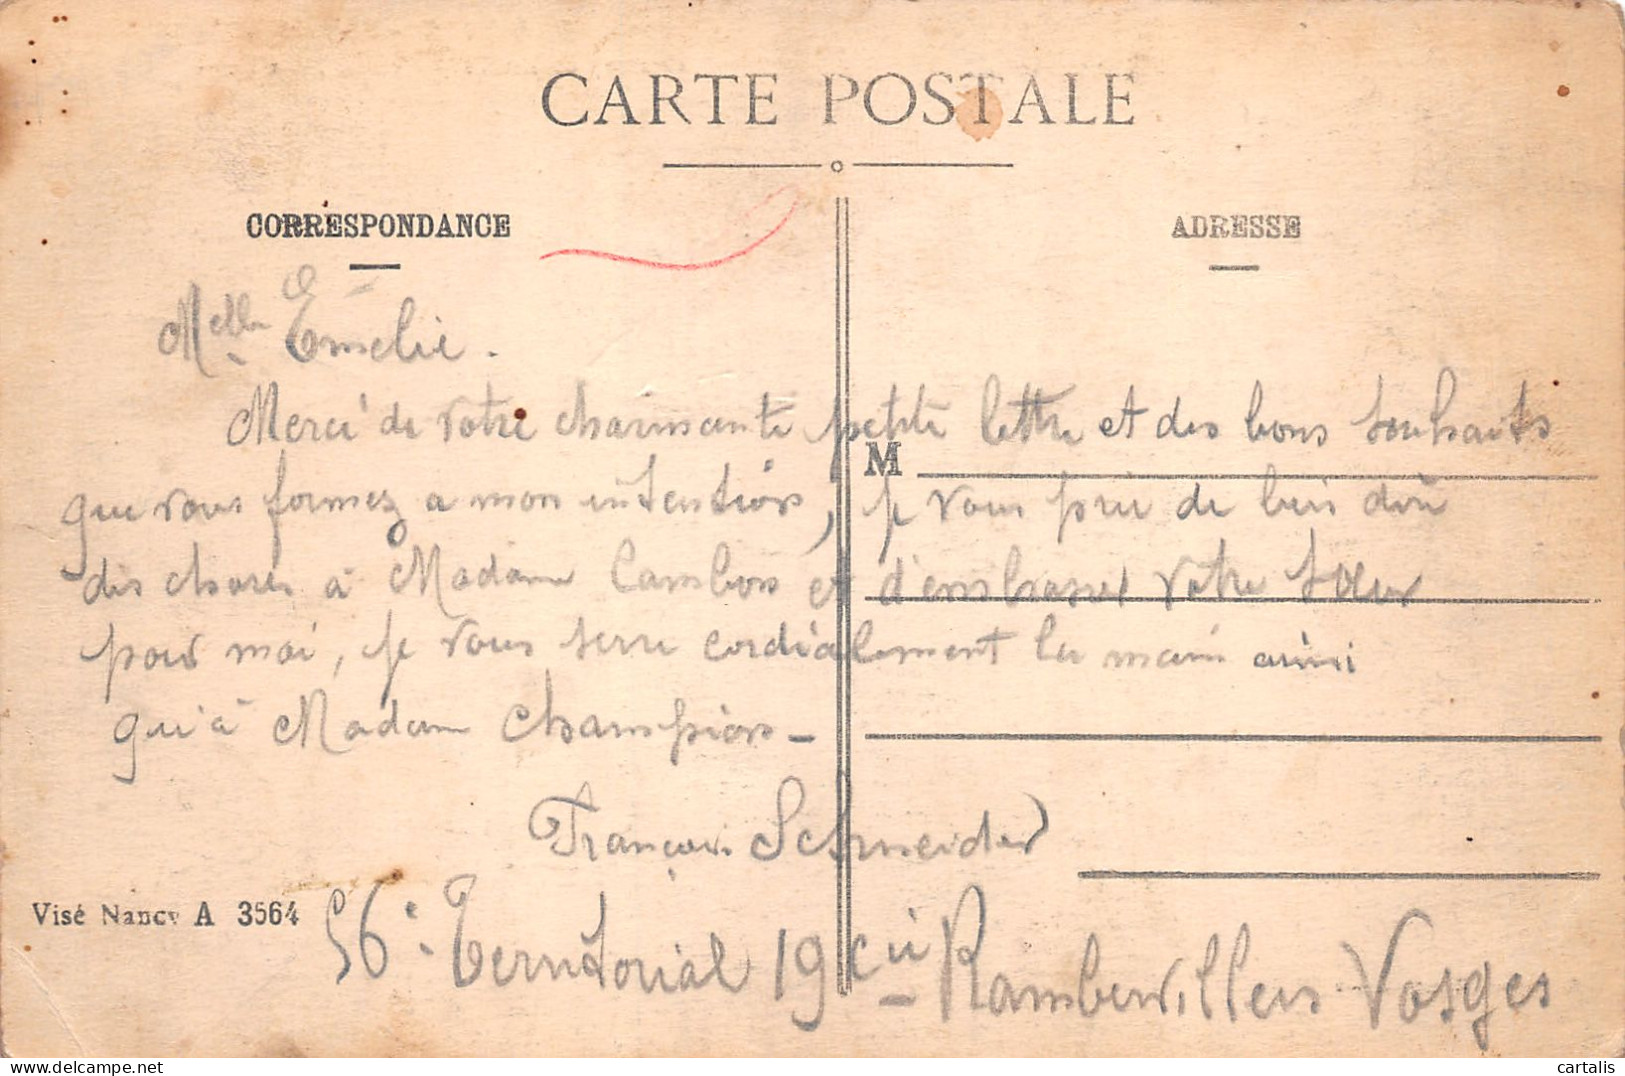 CARTE POSTALE
CORRESPONDANCE
ADRESSE
Melle Emelie.
Merci de votre charmante petite lettre et des bons souhaits
que vous formez a mon intention, je vous prie de bien
des choses à Madame Cambon et d'embrasser votre sœur
pour moi, je vous serre cordialement la main ainsi
qu'à Madame Champion -
M
François Schneider
56e Territorial 19 Cie Rambervillers Vosges
Visé Nancy A 3564
cartalis
delcampe.net